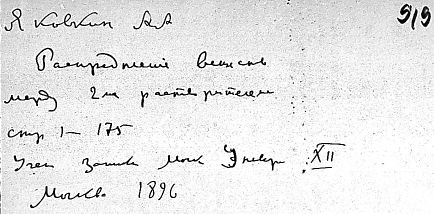 Яковкин АА 919
Распределение веществ
между 2мя растворителями
стр 1–175
Учен записки Моск Универ XII
Москва 1896